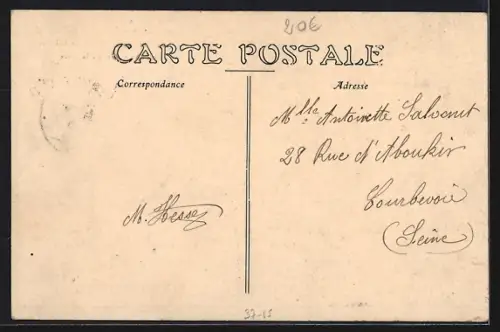 20€
CARTE POSTALE
Correspondance
Adresse
Mlle Antoinette Salvant
28 Rue d'Aboukir
Courbevoie
(Seine)
M. Hesse